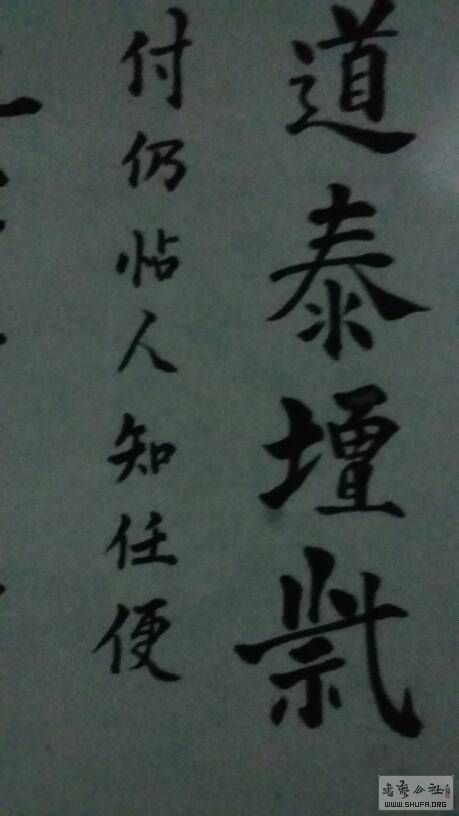 道泰壇
付仍帖人知任便
書藝公社
WWW.SHUFA.ORG